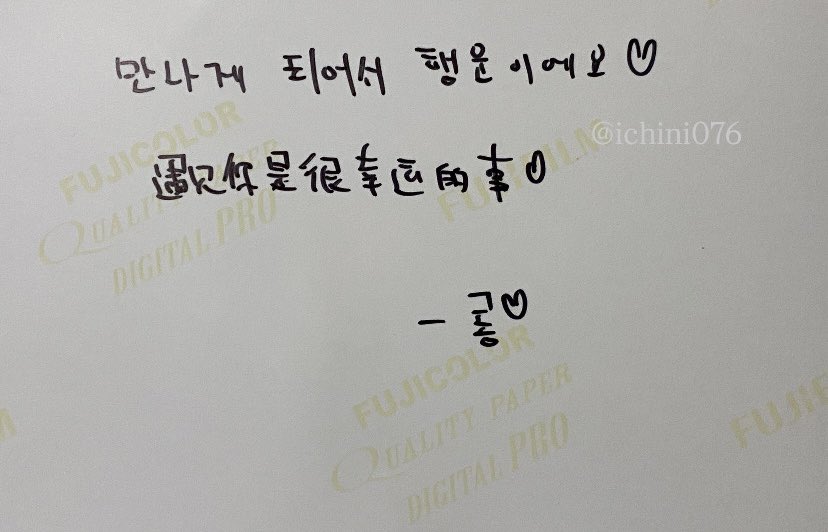 만나게 되어서 행운이에요♡
@ichini076
遇见你是很幸运的事♡
FUJICOLOR
QUALITY PAPER
DIGITAL PRO
FUJIFILM
- ♡
FUJICOLOR
QUALITY PAPER
DIGITAL PRO